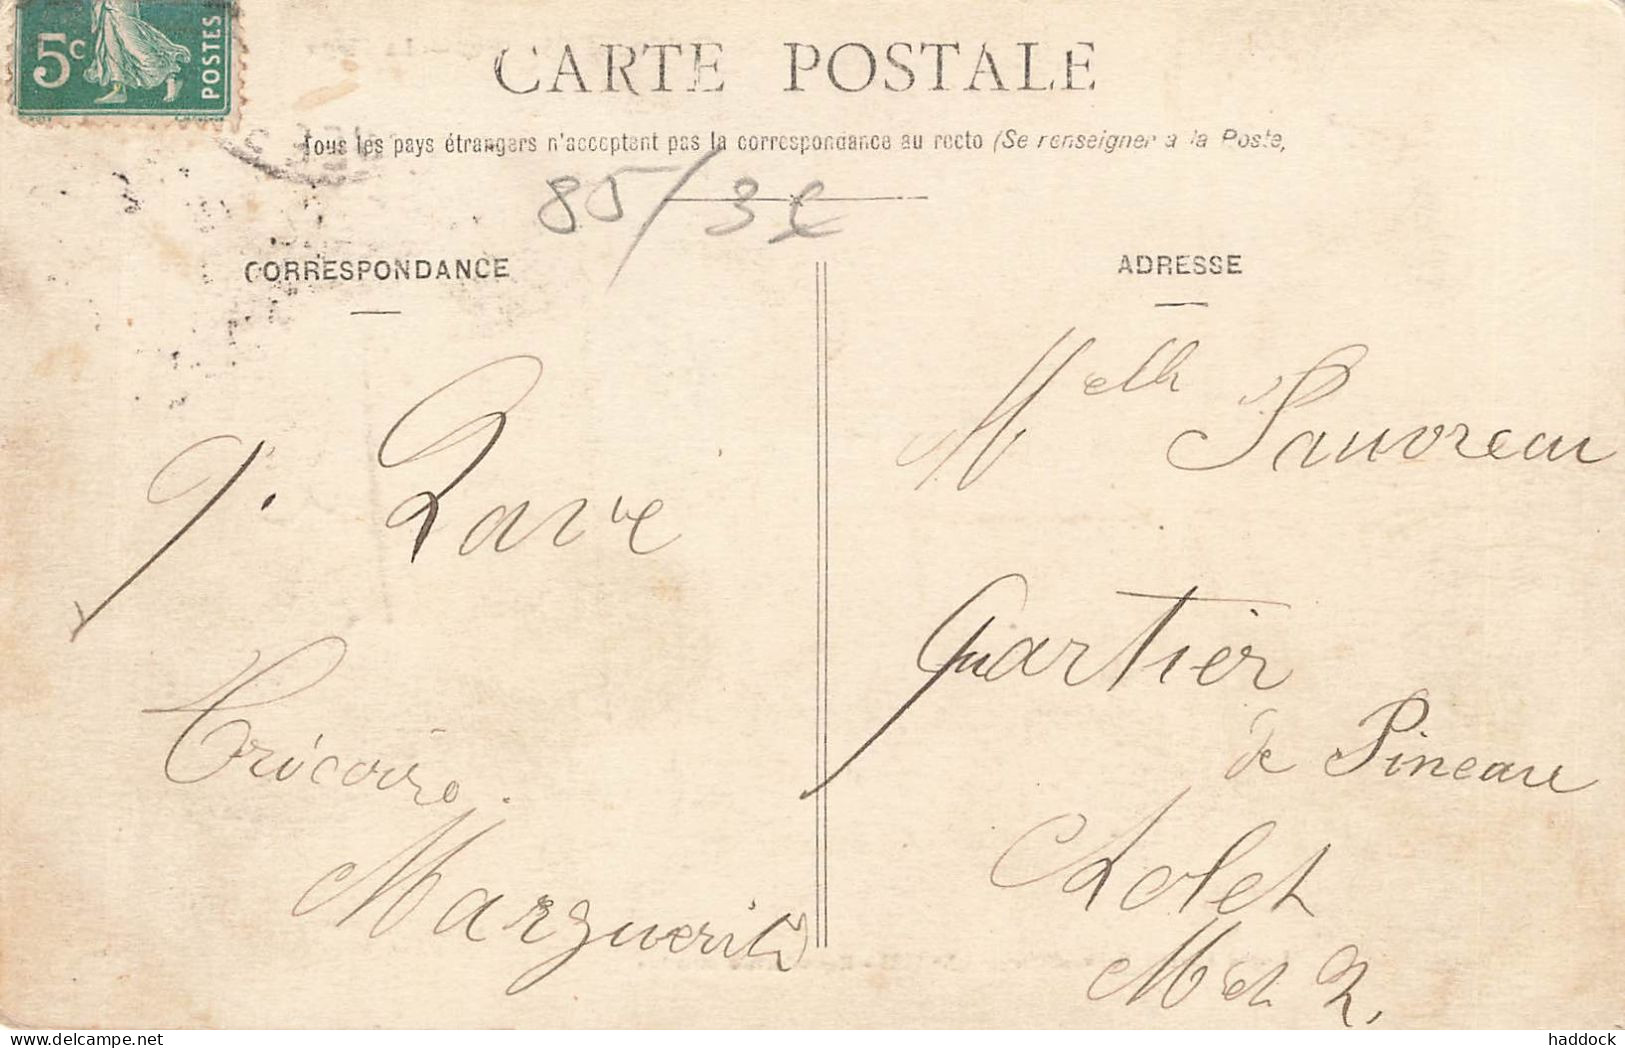 5c POSTES
CARTE POSTALE
Tous les pays étrangers n'acceptent pas la correspondance au recto (Se renseigner à la Poste,
85/3€
CORRESPONDANCE
Tricoire.
Marguerite
ADRESSE
Melle Sauvreau
Quartier
de Pineau
Cholet
M et L.
haddock